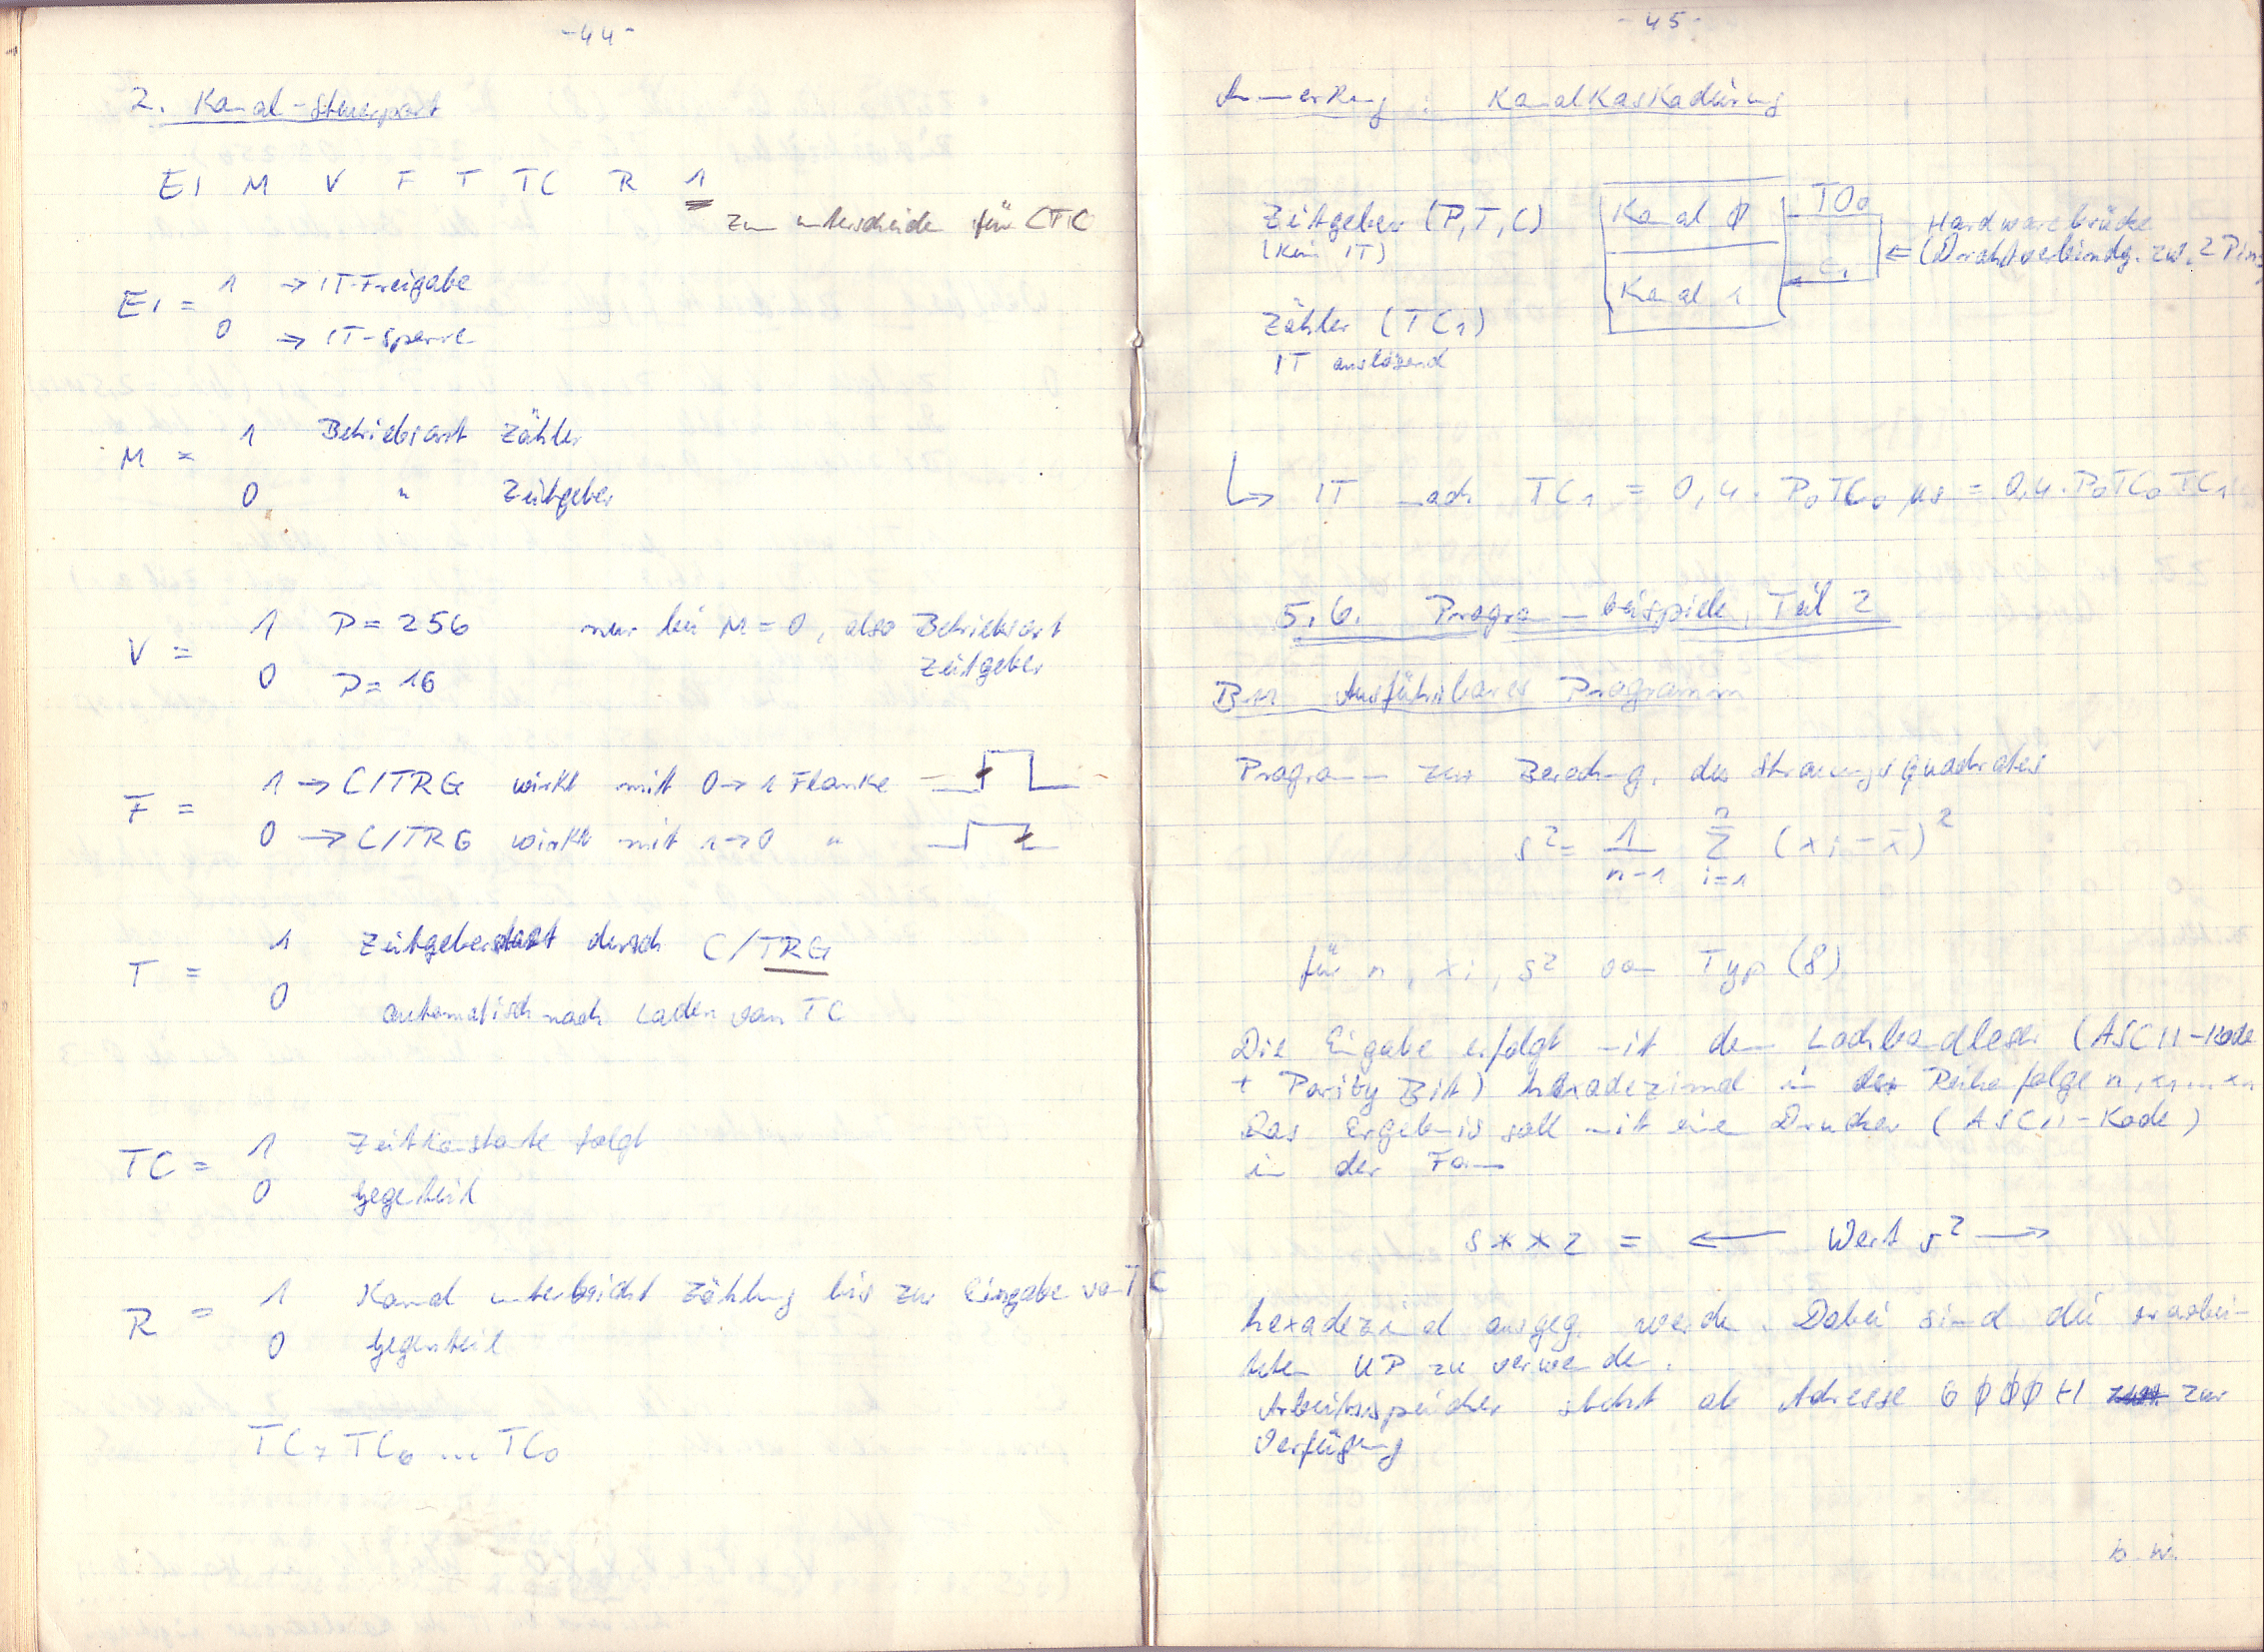 -44-
2. Kanal-Steuerwort
EI M V F T TC R 1
zum unterscheiden für CTC
EI = 1 → IT-Freigabe
0 → IT-sperre
M = 1 Betriebsart Zähler
0 " Zeitgeber
V = 1 P = 256 nur bei M = 0, also Betriebsart
0 P = 16 Zeitgeber
F = 1 → C/TRG wirkt mit 0→1 Flanke
0 → C/TRG wirkt mit 1→0 "
T = 1 Zeitgeberstart durch C/TRG
0 automatisch nach Laden von TC
TC = 1 Zeitkonstante folgt
0 Gegenteil
R = 1 Kanal unterbricht Zählung bis zur Eingabe von TC
0 Gegenteil
TC7 TC6 ... TC0
-45-
Anmerkung : Kanalkaskadierung
Zeitgeber (P,T,C) Kanal 0 TO0 Hardwarebrücke
(kein IT) ← (Drahtverbindg. zw. 2 Pins
Zähler (TC1) Kanal 1 C1
IT auslösend
↳ IT nach TC1 = 0,4 · P0TC0 µs = 0,4 · P0TC0TC1
5.6. Programmbeispiele, Teil 2
B11 Ausführbares Programm
Programm zur Berechng. des Streuungsquadrates
s² = 1/(n-1) Σ (xi - x̄)²
n
i=1
für n, xi, s² von Typ (8)
Die Eingabe erfolgt mit dem Lochbandleser (ASCII-Kode
+ Parity Bit) hexadezimal in der Reihenfolge n, x1...xn
Das Ergebnis soll mit einem Drucker (ASCII-Kode)
in der Form
S**2 = ← Wert s² →
hexadezimal ausgeg. werden. Dabei sind die erarbei-
teten UP zu verwenden.
Arbeitsspeicher steht ab Adresse 6000H zur
Verfügung
b.w.